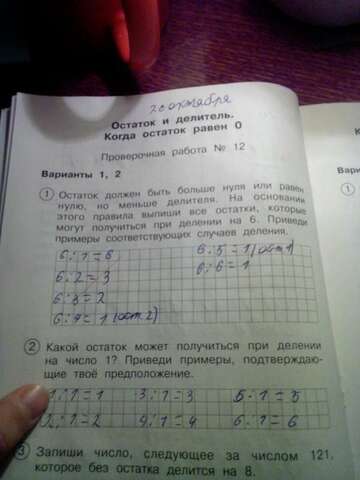 20 октября
Остаток и делитель.
Когда остаток равен 0
Проверочная работа № 12
Варианты 1, 2
1 Остаток должен быть больше нуля или равен
нулю, но меньше делителя. На основании
этого правила выпиши все остатки, которые
могут получиться при делении на 6. Приведи
примеры соответствующих случаев деления.
6:1=6 6:5=1(ост1)
6:2=3 6:6=1
6:3=2
6:4=1(ост.2)
2 Какой остаток может получиться при делении
на число 1? Приведи примеры, подтверждаю-
щие твоё предположение.
1:1=1 3:1=3 5:1=5
2:1=2 4:1=4 6:1=6
3 Запиши число, следующее за числом 121,
которое без остатка делится на 8.